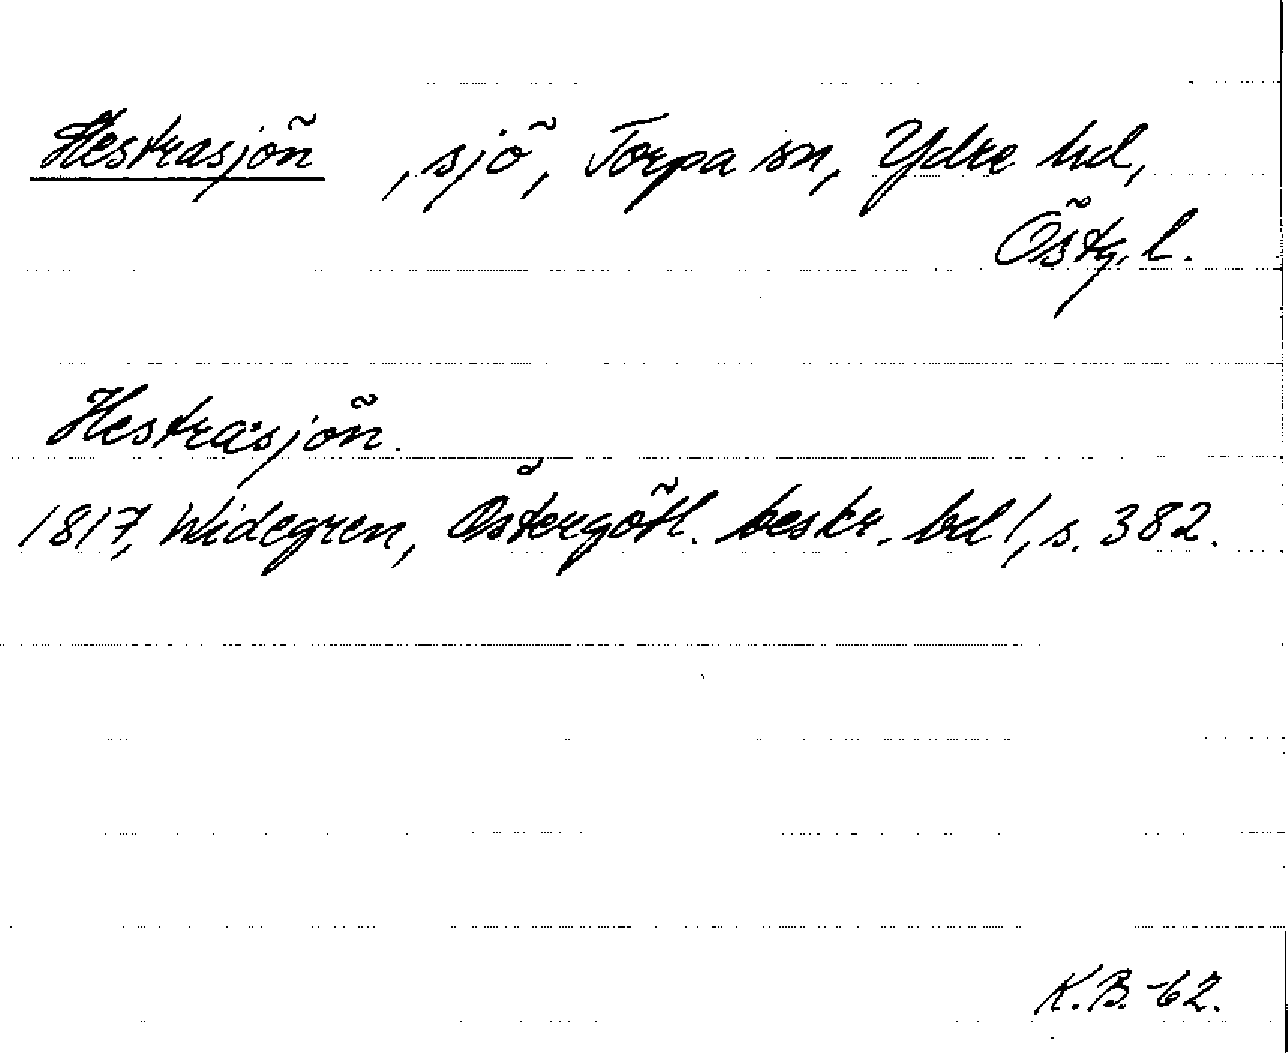 Hestrasjön , sjö, Torpa sn, Ydre hd,
Östg. l.
Hestrasjön.
1817, Widegren, Östergötl. beskr. bd 1, s. 382.
K.B. -62.